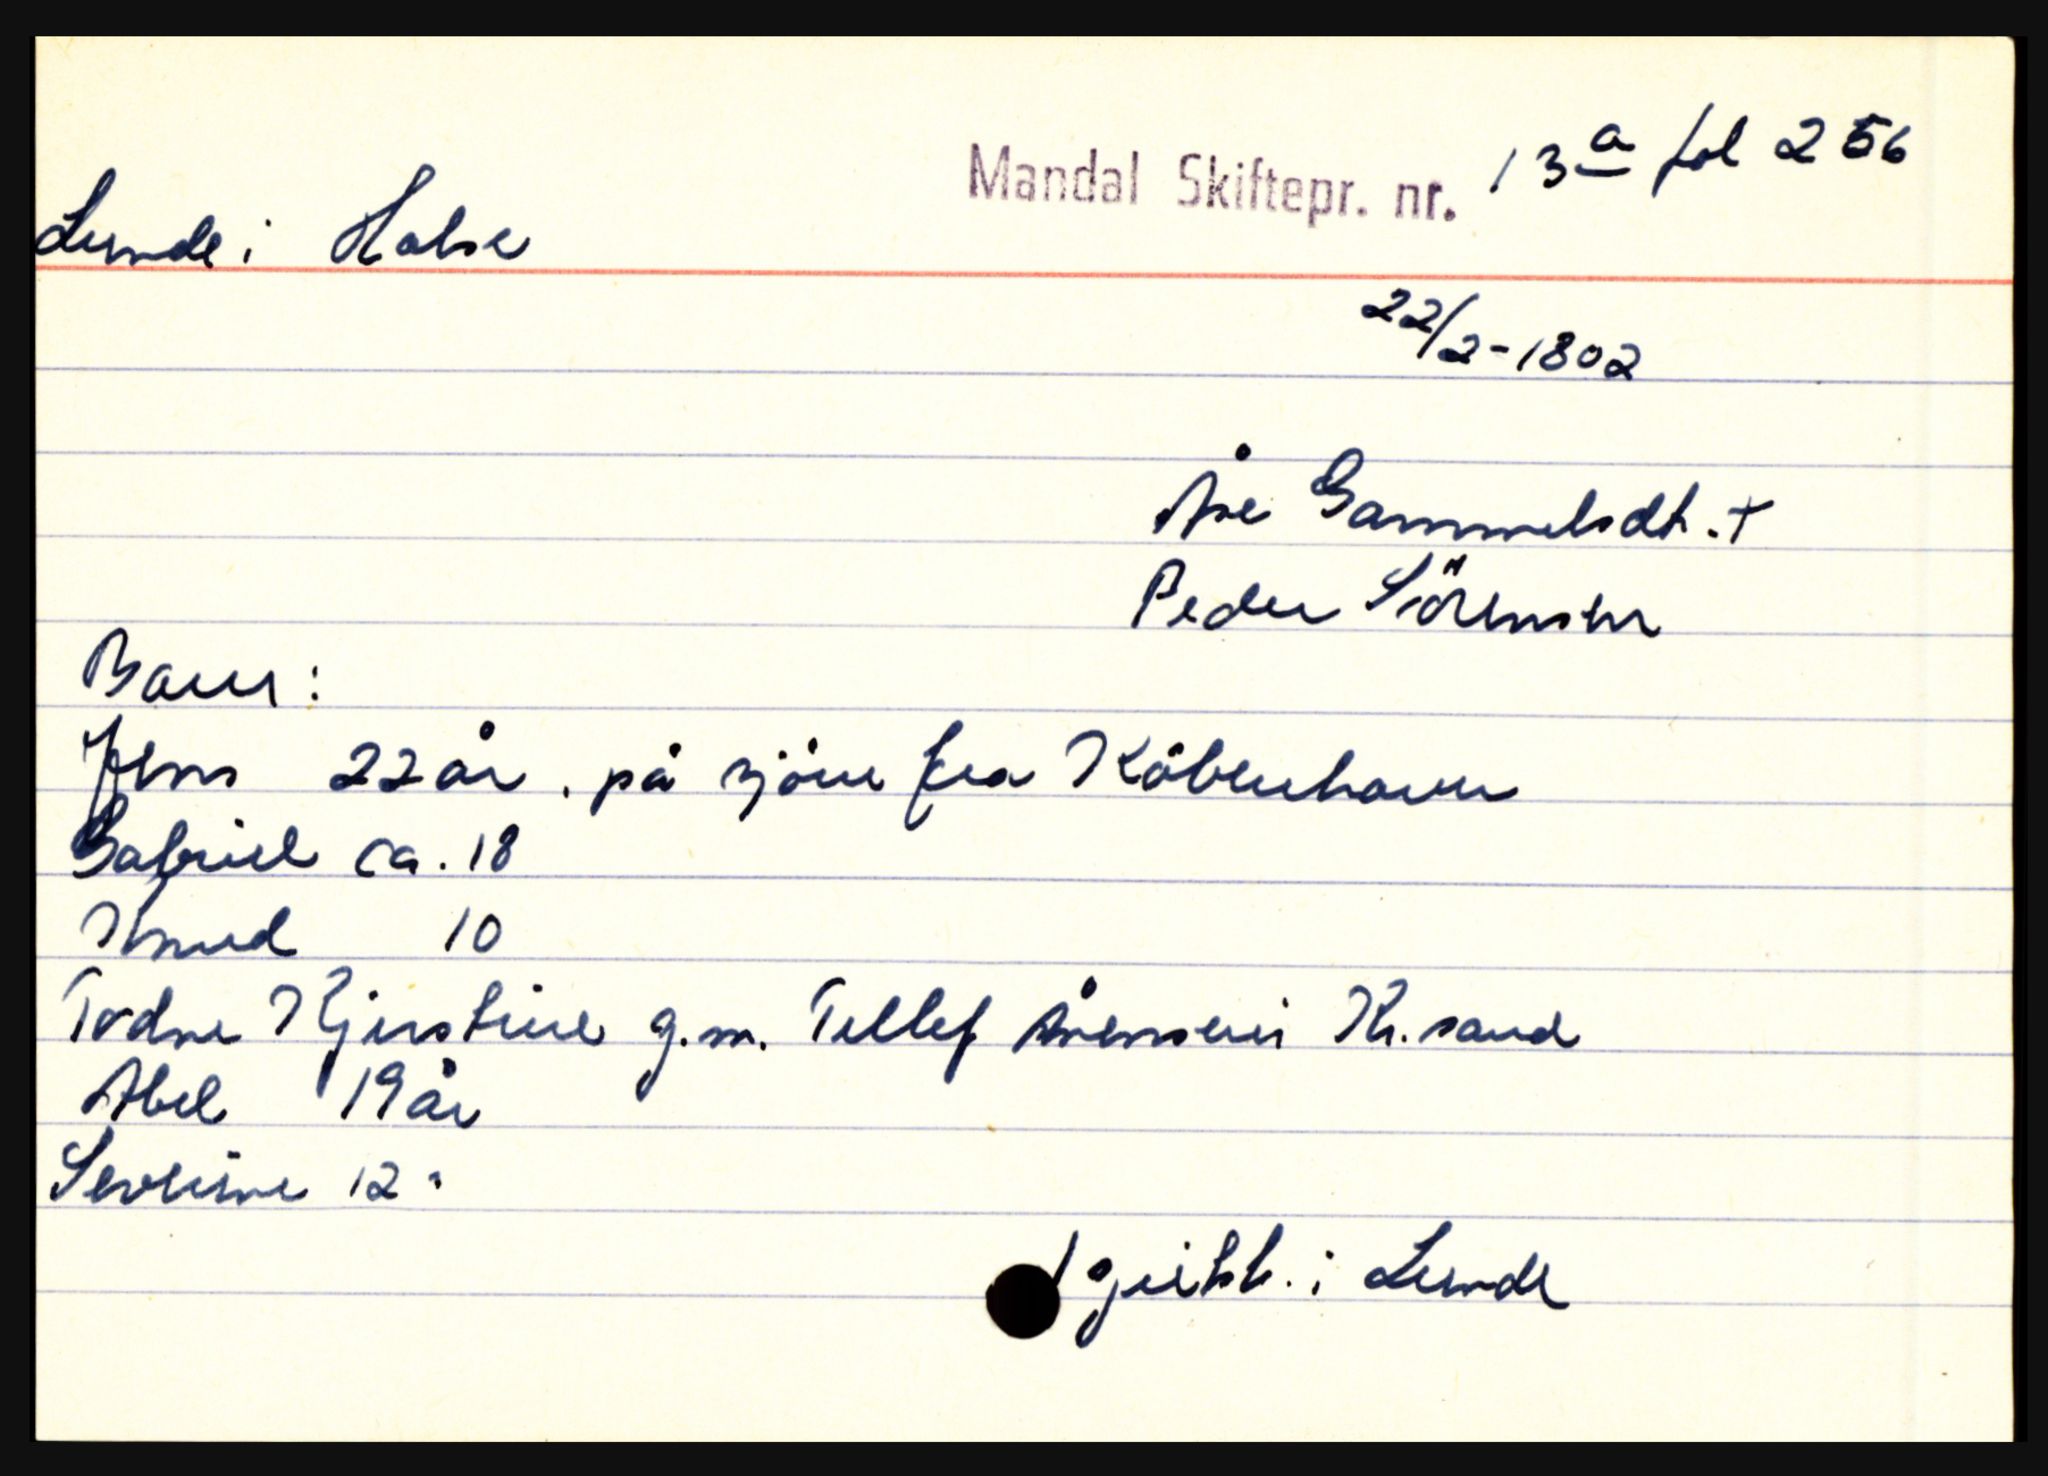 Mandal Skiftepr. nr. 13a fol 256
Lunde i Halse
22/2-1802
Åse Gammelsdt. +
Peder Sörensen
Barn:
Jens 22 år. på sjöen fra Köbenhavn
Gabriel ca. 18
Knud 10
Todne Kjerstine g.m. Tellef Arensen i Kr.sand
Abel 19 år
Severine 12 "
1 gjerksl. i Lunde